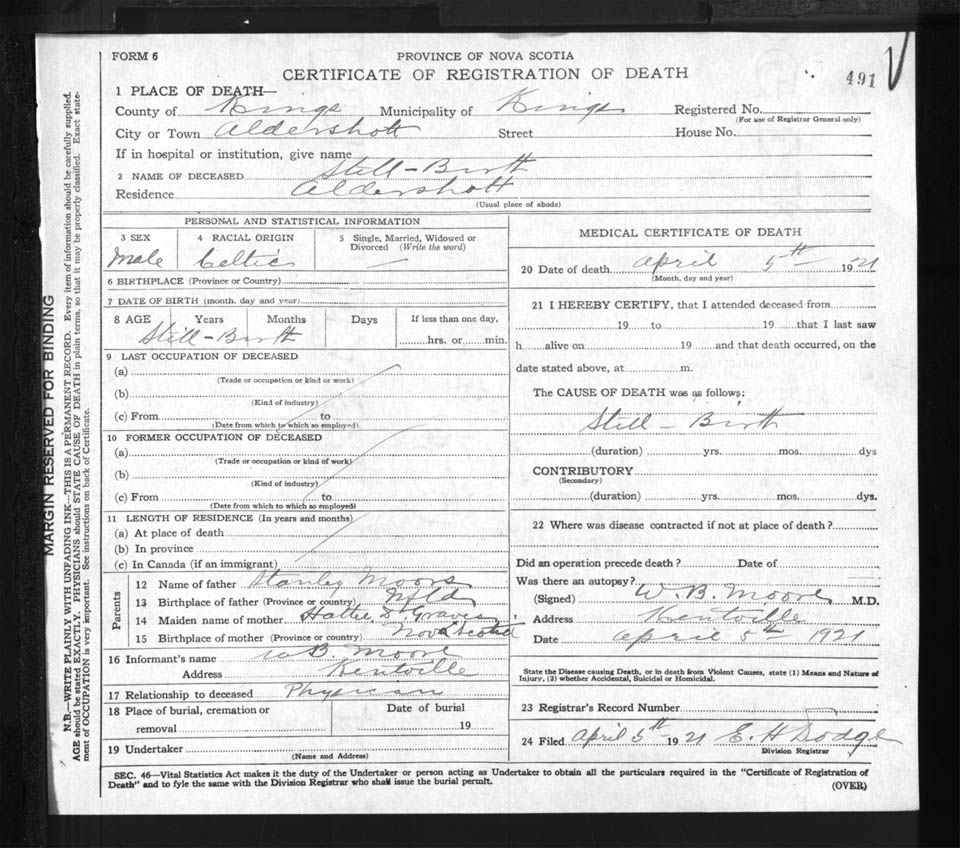 FORM 6
PROVINCE OF NOVA SCOTIA
CERTIFICATE OF REGISTRATION OF DEATH
491
1 PLACE OF DEATH—
County of Kings Municipality of Kings Registered No.
(For use of Registrar General only)
City or Town Aldershott Street House No.
If in hospital or institution, give name
2 NAME OF DECEASED Still-Birth
Residence Aldershott
(Usual place of abode)
PERSONAL AND STATISTICAL INFORMATION
3 SEX 4 RACIAL ORIGIN 5 Single, Married, Widowed or Divorced (Write the word)
Male Celtic —
6 BIRTHPLACE (Province or Country)
7 DATE OF BIRTH (month, day and year)
8 AGE Years Months Days If less than one day,
Still-Birth hrs. or min.
9 LAST OCCUPATION OF DECEASED
(a)
(Trade or occupation or kind or work)
(b)
(Kind of industry)
(c) From to
(Date from which to which so employed)
10 FORMER OCCUPATION OF DECEASED
(a)
(Trade or occupation or kind of work)
(b)
(Kind of industry)
(c) From to
(Date from which to which so employed)
11 LENGTH OF RESIDENCE (In years and months)
(a) At place of death
(b) In province
(c) In Canada (if an immigrant)
Parents
12 Name of father Stanley Moors
13 Birthplace of father (Province or country) Nfld
14 Maiden name of mother Hattie Graves
15 Birthplace of mother (Province or country) Nova Scotia
16 Informant's name W B. Moore
Address Kentville
17 Relationship to deceased Physician
18 Place of burial, cremation or removal Date of burial
19
19 Undertaker
(Name and Address)
MEDICAL CERTIFICATE OF DEATH
20 Date of death April 5th 1921
(Month, day and year)
21 I HEREBY CERTIFY, that I attended deceased from
19 to 19 that I last saw
h alive on 19 and that death occurred, on the
date stated above, at m.
The CAUSE OF DEATH was as follows:
Still-Birth
(duration) yrs. mos. dys
CONTRIBUTORY
(Secondary)
(duration) yrs. mos. dys.
22 Where was disease contracted if not at place of death?
Did an operation precede death? Date of
Was there an autopsy?
(Signed) W. B. Moore M.D.
Address Kentville
Date April 5th 1921
State the Disease causing Death, or in death from Violent Causes, state (1) Means and Nature of
Injury, (2) whether Accidental, Suicidal or Homicidal.
23 Registrar's Record Number
24 Filed April 5th 1921 E. H Dodge
Division Registrar
SEC. 46—Vital Statistics Act makes it the duty of the Undertaker or person acting as Undertaker to obtain all the particulars required in the "Certificate of Registration of
Death" and to fyle the same with the Division Registrar who shall issue the burial permit.
(OVER)
MARGIN RESERVED FOR BINDING
N.B.—WRITE PLAINLY WITH UNFADING INK—THIS IS A PERMANENT RECORD. Every item of information should be carefully supplied.
AGE should be stated EXACTLY. PHYSICIANS should STATE CAUSE OF DEATH in plain terms, so that it may be properly classified. Exact state-
ment of OCCUPATION is very important. See instructions on back of Certificate.